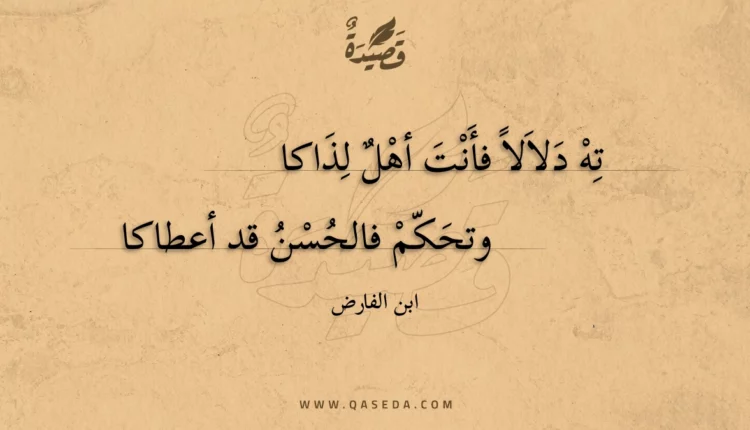 قَصِيْدَةٌ
تِهْ دَلاَلاً فأَنْتَ أهْلٌ لِذَاكا
وتحَكّمْ فالحُسْنُ قد أعطاكا
ابن الفارض
WWW.QASEDA.COM